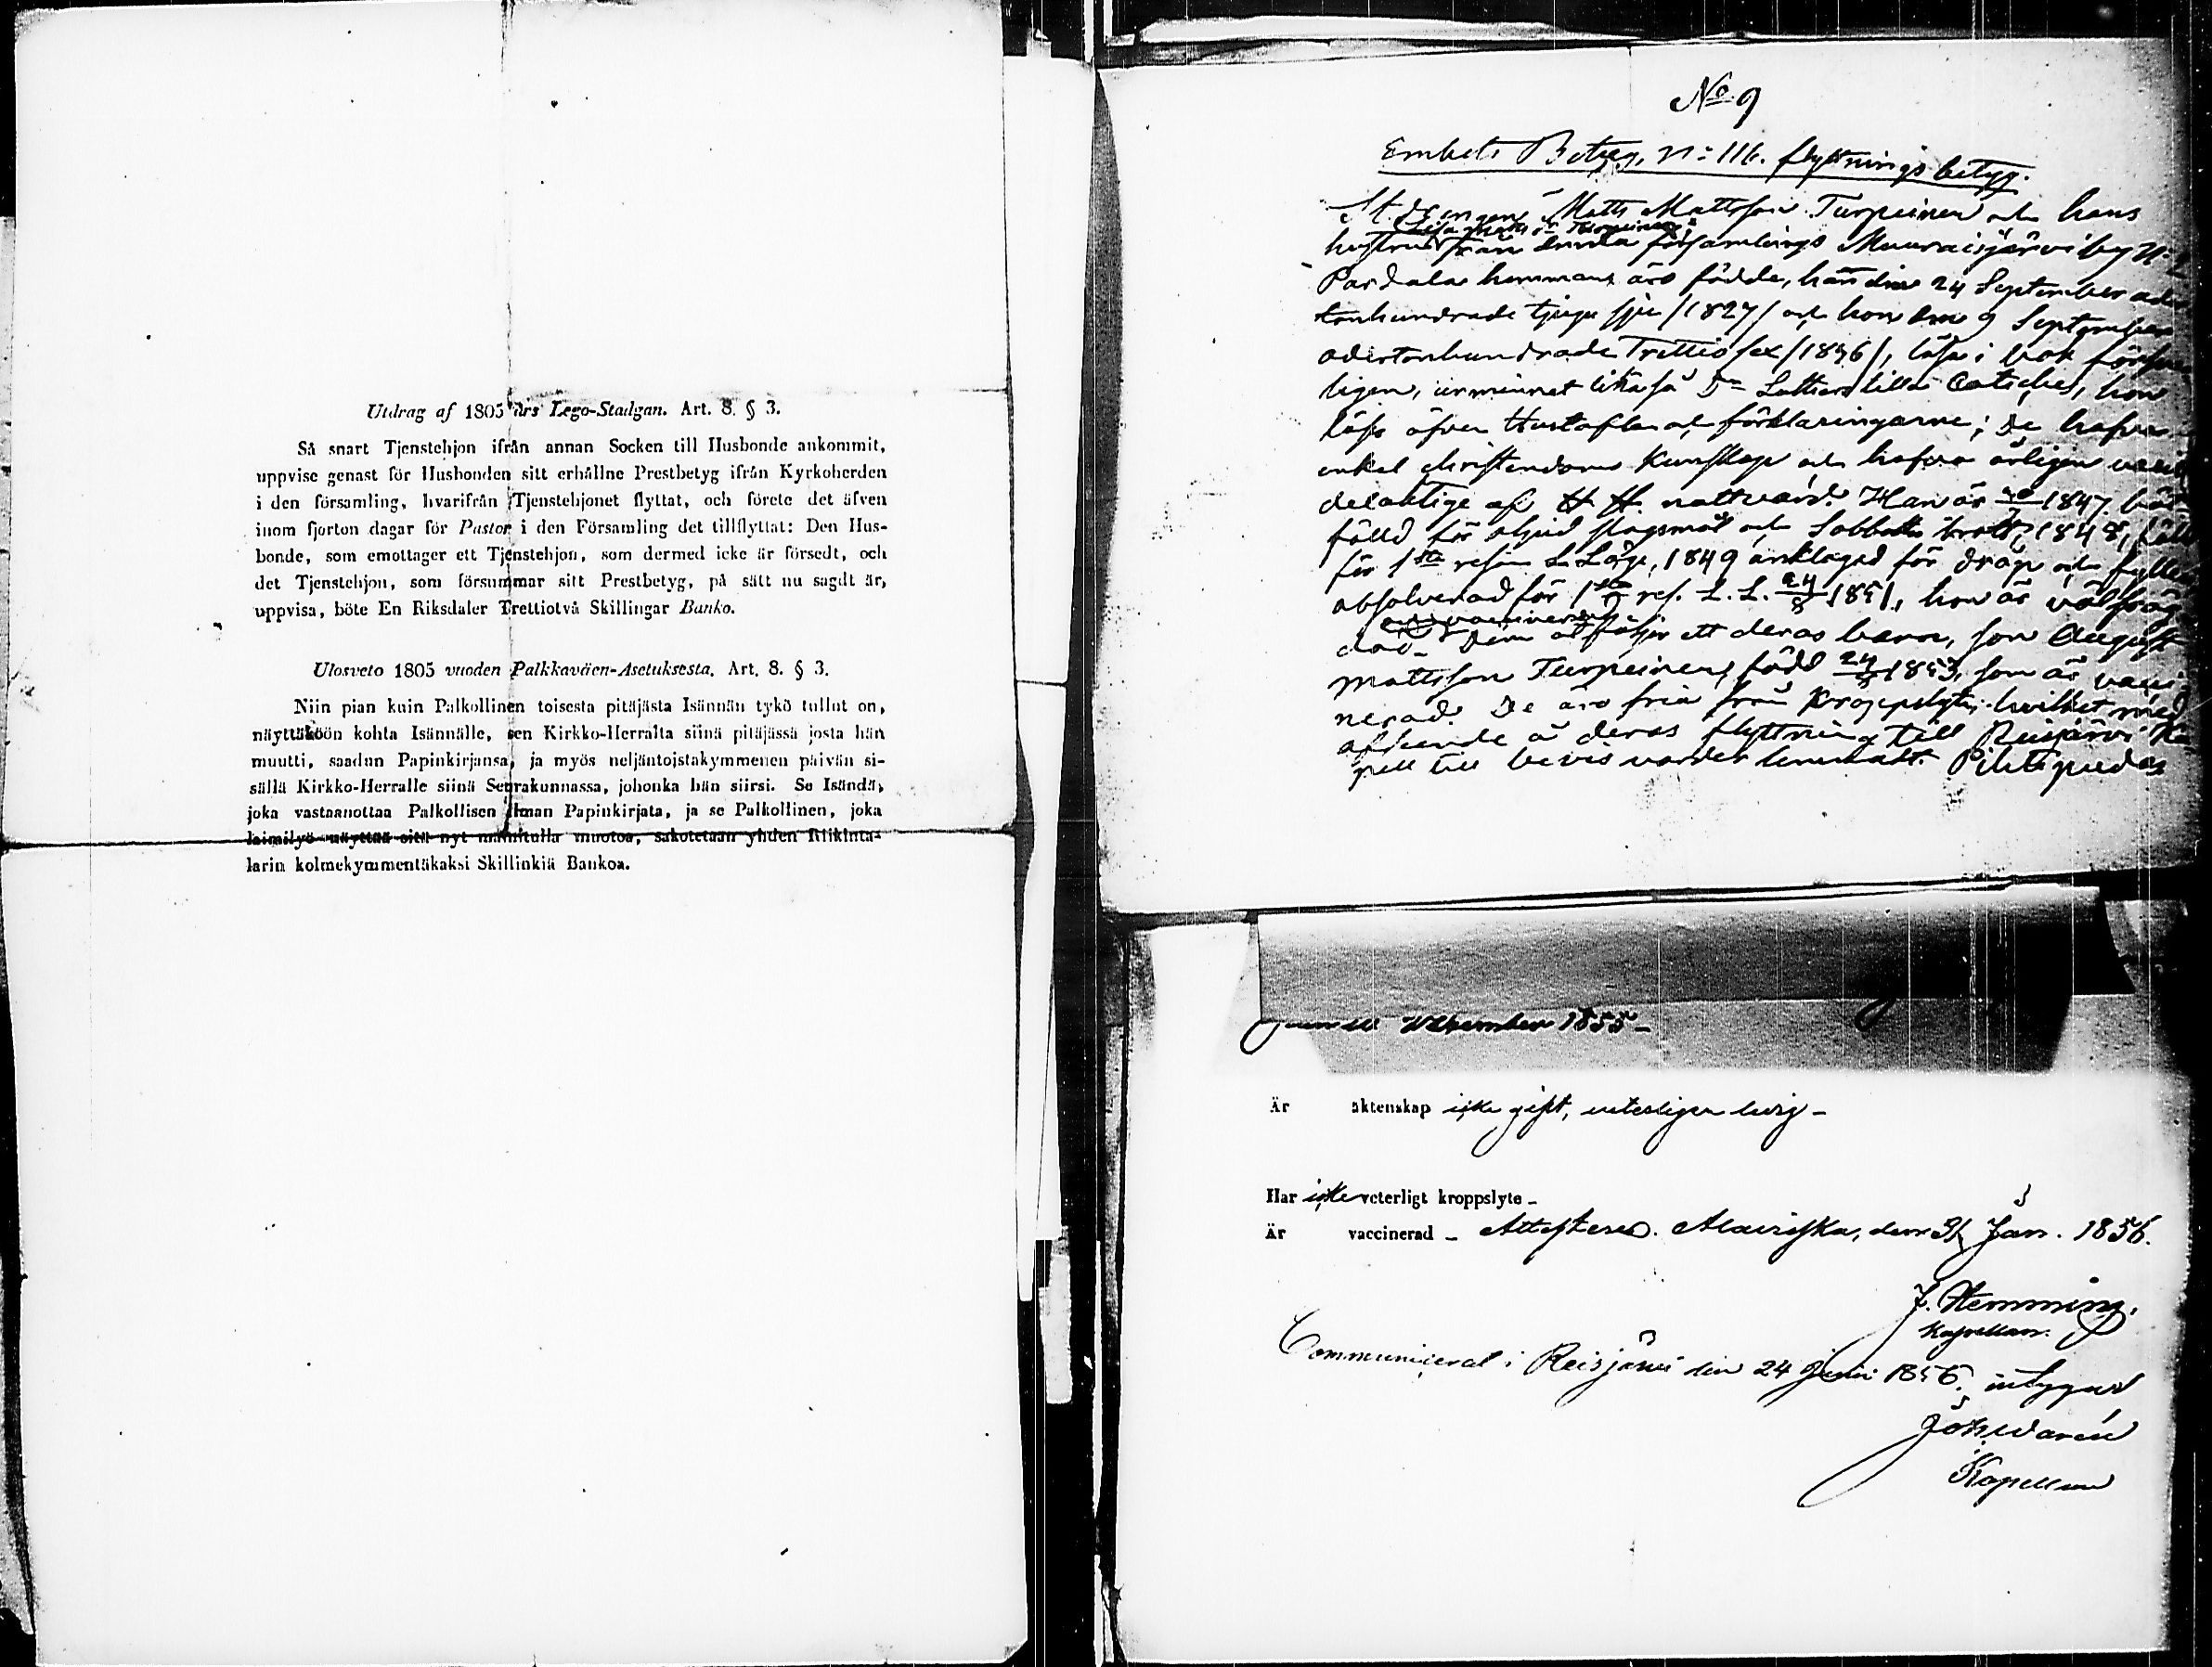 Utdrag af 1805 års Lego-Stadgan. Art. 8. § 3.
Så snart Tjenstehjon ifrån annan Socken till Husbonde ankommit,
uppvise genast för Husbonden sitt erhållne Prestbetyg ifrån Kyrkoherden
i den församling, hvarifrån Tjenstehjonet flyttat, och förete det äfven
inom fjorton dagar för Pastor i den Församling det tillflyttat: Den Hus-
bonde, som emottager ett Tjenstehjon, som dermed icke är försedt, och
det Tjenstehjon, som försummar sitt Prestbetyg, på sätt nu sagdt är,
uppvisa, böte En Riksdaler Trettiotvå Skillingar Banko.
Ulosveto 1805 vuoden Palkkaväen-Asetuksesta. Art. 8. § 3.
Niin pian kuin Palkollinen toisesta pitäjästa Isännän tykö tullut on,
näyttäköön kohta Isännälle, sen Kirkko-Herralta siinä pitäjässä josta hän
muutti, saadun Papinkirjansa, ja myös neljäntoistakymmenen päivän si-
sällä Kirkko-Herralle siinä Seurakunnassa, johonka hän siirsi. Se Isändä,
joka vastaanottaa Palkollisen ilman Papinkirjata, ja se Palkollinen, joka
laimilyö näyttää sitä nyt mainitulla muotoa, sakotetaan yhden Riikinta-
larin kolmekymmentäkaksi Skillinkiä Bankoa.
No 9
Embets Betyg, No 116. flyttningsbetyg.
St. Drengen Matts Mattsson Turpeinen och hans
hustru från denna församlings Muuraisjärvi by No 2
Pardala hemman, äro födde, han den 24 September ader
tonhundrade tjugu sju /1827/ och hon den 9 September
adertonhundrade Trettio sex /1836/, läsa i bok förswar
ligen, urminnet likaså Dr Lutheri lilla Cateches, hon
läser äfven Hustaflan och förklaringarne; De hafva
enkel christendoms kunskap och hafva årligen varit
delaktige af H. H. nattvard. Han är 1847 böt
fälld för oljud slagsmål och Sabbats brott, 1848, fälld
för 1sta resan L. Läge, 1849 anklagad för dråp och fylleri
absolverad för 1sta res. L. L. 24/8 1851, hon är välfräg
dad. Dem åtföljer ett deras barn, son August
Mattsson Turpeinen, född 24/8 1853, som är vacci
nerad. De äro fria från kroppslyte; hvilket med
afseende å deras flyttning till Reisjärvi Ka
pell till bevis varder lemnadt. Pihtipudas
December 1855 -
Är äktenskap icke gift, veterligen ledig -
Har icke veterligt kroppslyte -
Är vaccinerad - Attesterad. Alavieska, den 31 Jan. 1856.
J. Hemming.
Kapellan.
Communicerat i Reisjärvi den 24 Juni 1856. intygar
Kapellan